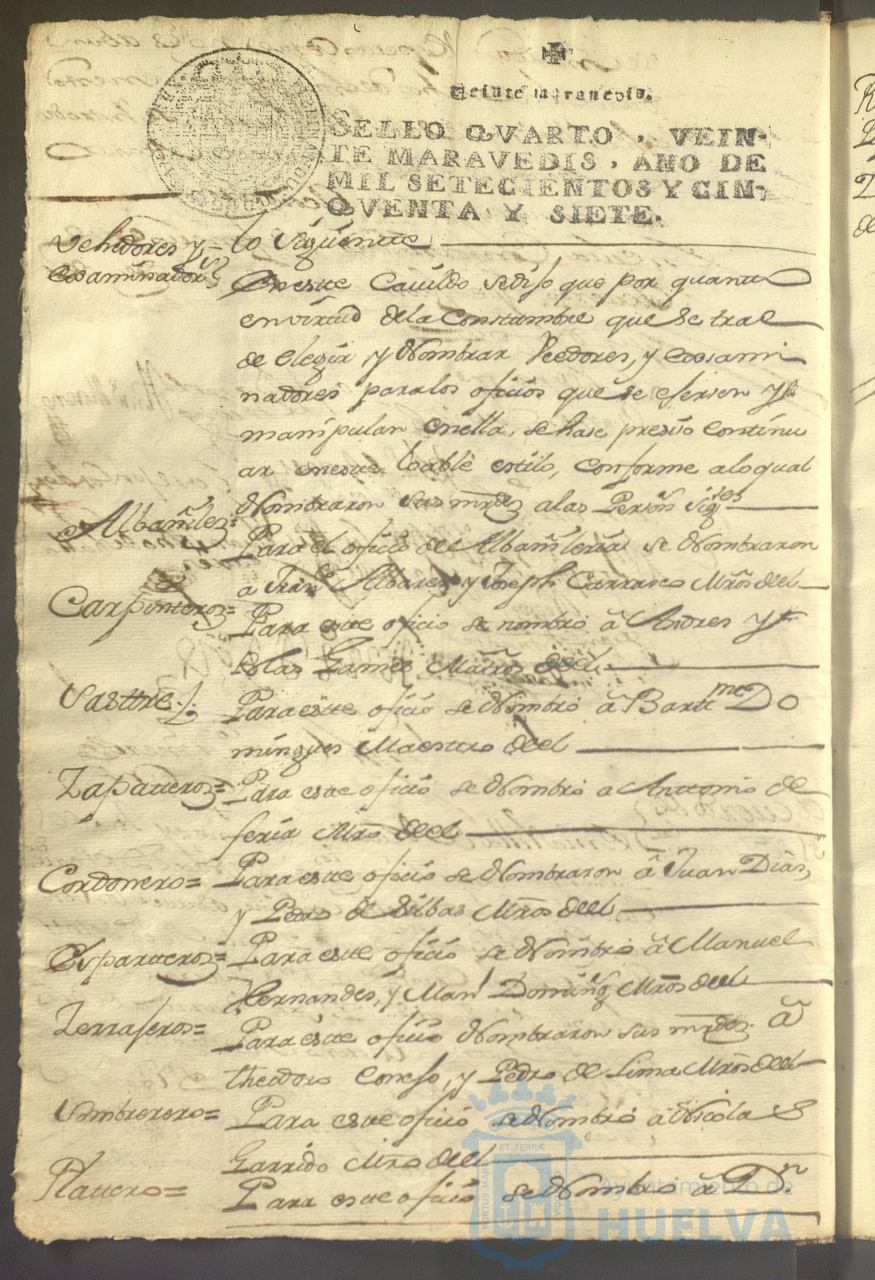 Veinte maravedis.
SELLO QVARTO, VEIN-
TE MARAVEDIS, AÑO DE
MIL SETECIENTOS Y CIN-
QVENTA Y SIETE.
Vehedores y lo siguiente
examinadors
En este Cavildo se dijo que por quanto
en virtud de la Constumbre que se trae
de elegir y Nombrar Veedores, y exsami
nadores para los ofisios que se ejersen y
manipulan en ella, se hase presiso continu
ar en este loable estilo, conforme a lo qual
Nombraron sus mrds a las Person sigtes
Albañiles= Para el ofisio de Albañileria se Nombraron
a Fran Albares y Joseph Carrasco Mros del
Carpinteros= Para este oficio se nombró â Andres y
Blas Gamez Maíros del
Sasttre Para este ofisio se Nombró â Bartme Do
mingues Maesttro del
Zapatero= Para este ofisio se Nombró a Anttonio de
feria Mro del
Cordonero= Para este ofisio se Nombraron â Juan Dias,
y Pedro de Bilbas Mros del
Espartero= Para este ofisio se Nombró â Manuel
Hernandes, y Manl Doming Mros del
Zerrajeros= Para este ofisio Nombraron sus mrds â
theodoro Conejo, y Pedro de Lima Mros del
Sombrerero= Para este ofisio se Nombró â Nicolas
Garrido Mro del
Plattero= Para este ofisio se Nombró â Dn
ET TERRÆ
PORTUS MARIS
Ayuntamiento de
HUELVA